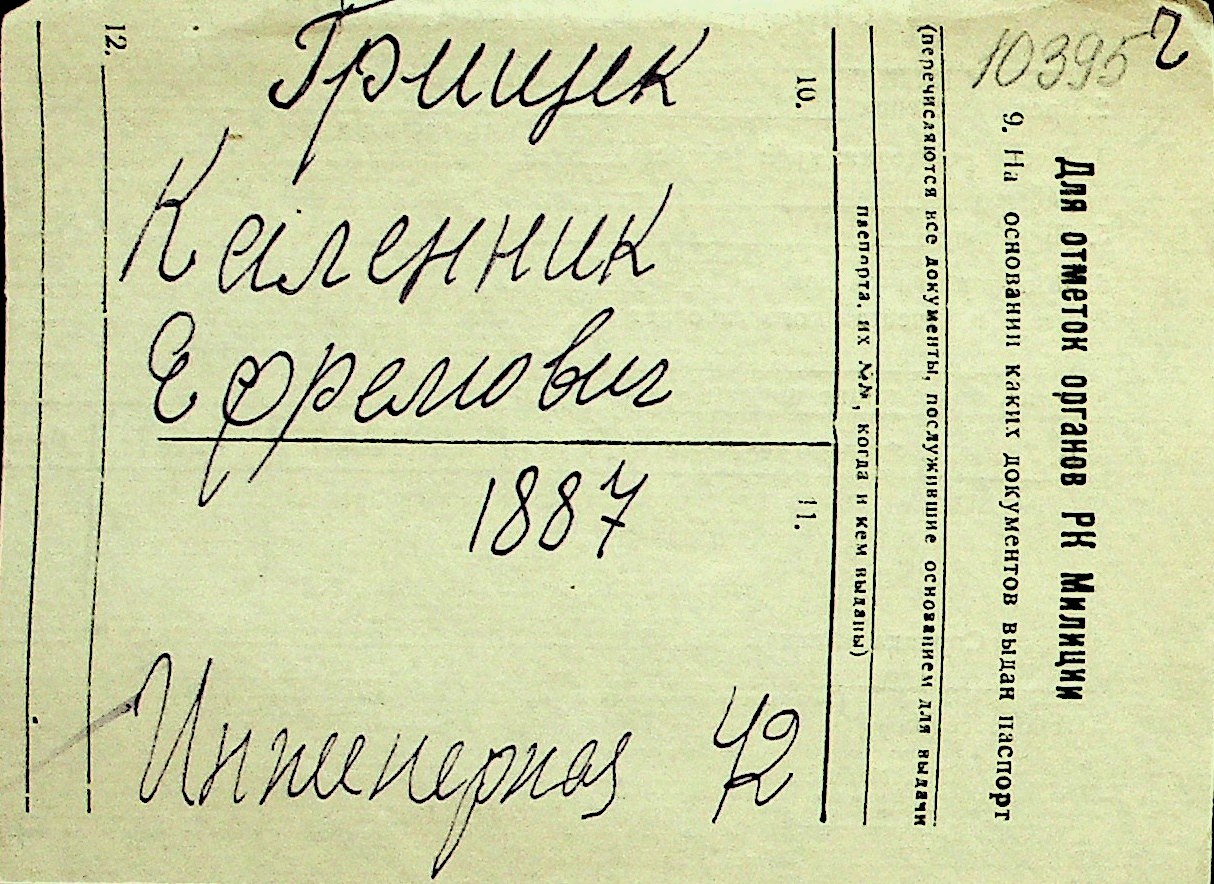 10395
г
Грищек
Каленник
Ефремович
1887
Инженерная 42
Для отметок органов РК Милиции
9. На основании каких документов выдан паспорт
(перечисляются все документы, послужившие основанием для выдачи
паспорта, их №№, когда и кем выданы)
10.
11.
12.